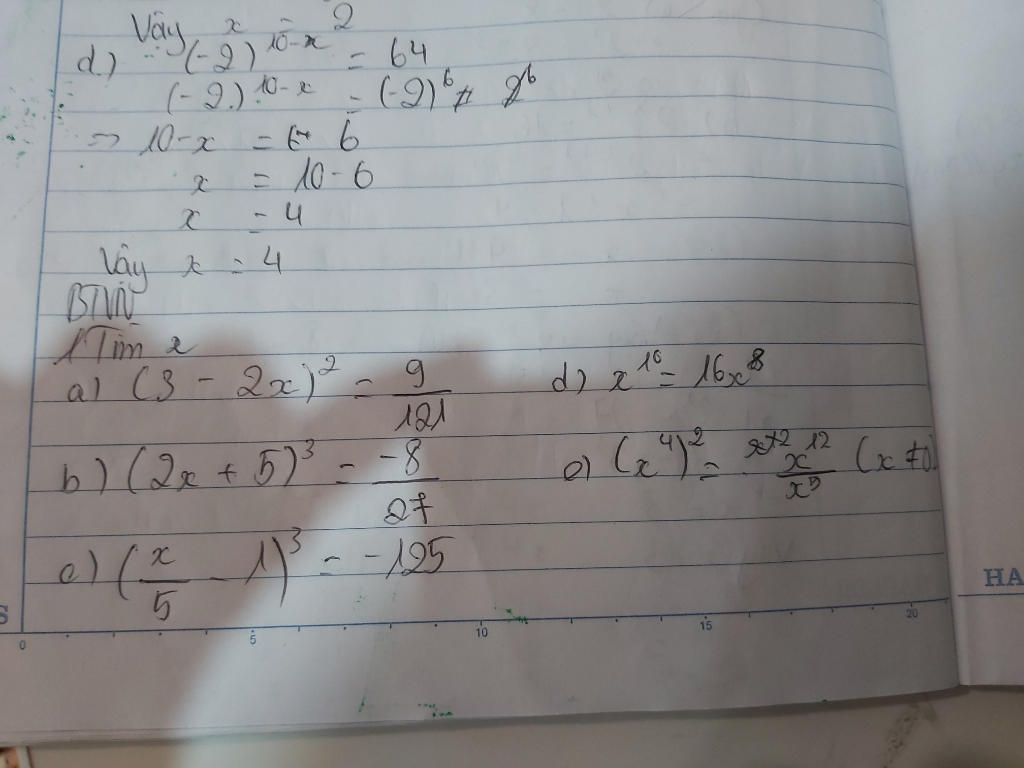 Vậy x = 2
d.) (-2)^10-x = 64
(-2.)^10-x = (-2)^6
=> 10-x = 6
x = 10-6
x = 4
Vậy x = 4
BTVN
1 Tìm x
a) (3 - 2x)^2 = 9/121 d) x^10 = 16x^8
b) (2x + 5)^3 = -8/27 e) (x^4)^2 = x^12/x^5 (x ≠ 0)
c) (x/5 - 1)^3 = -125
HA
S
0 5 10 15 20